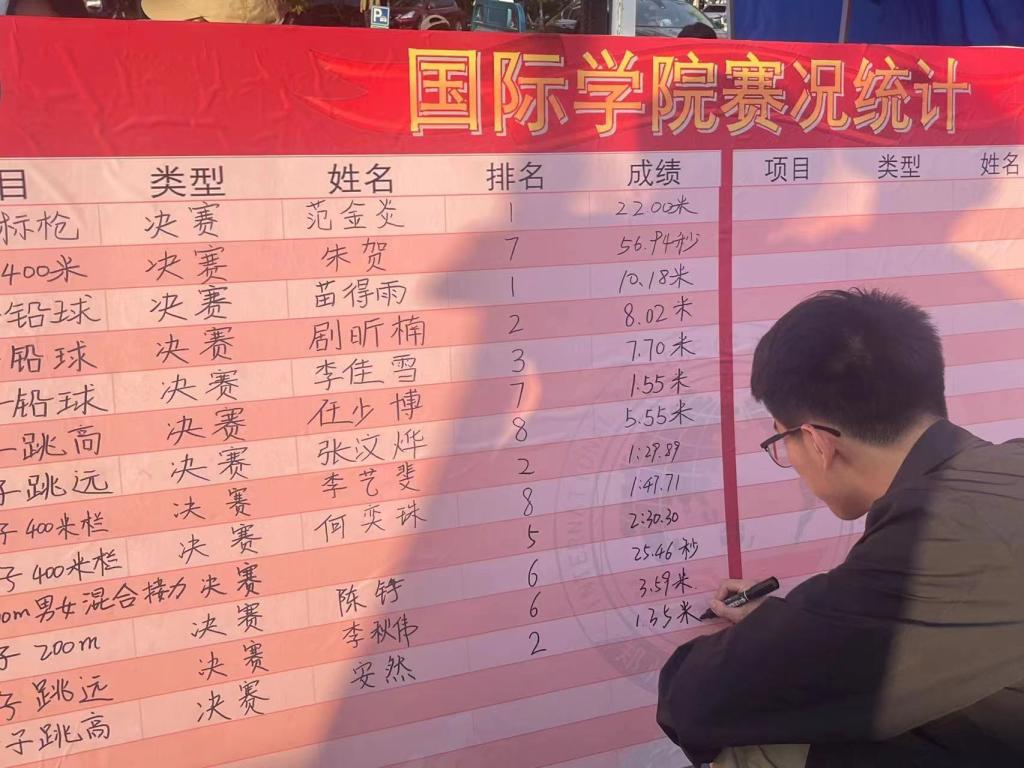 国际学院赛况统计
目 类型 姓名 排名 成绩 项目 类型 姓名
标枪 决赛 范金炎 1 22.00米
400米 决赛 朱贺 7 56.94秒
铅球 决赛 苗得雨 1 10.18米
铅球 决赛 剧昕楠 2 8.02米
铅球 决赛 李佳雪 3 7.70米
跳高 决赛 任少博 7 1.55米
子跳远 决赛 张汶烨 8 5.55米
子400米栏 决赛 李艺斐 2 1:29.89
子400米栏 决赛 何奕珠 8 1:41.71
00m男女混合接力 决赛 5 2:30.30
子 200m 决赛 陈铮 6 25.46秒
子跳远 决赛 李秋伟 6 3.59米
子跳高 决赛 安然 2 1.35米